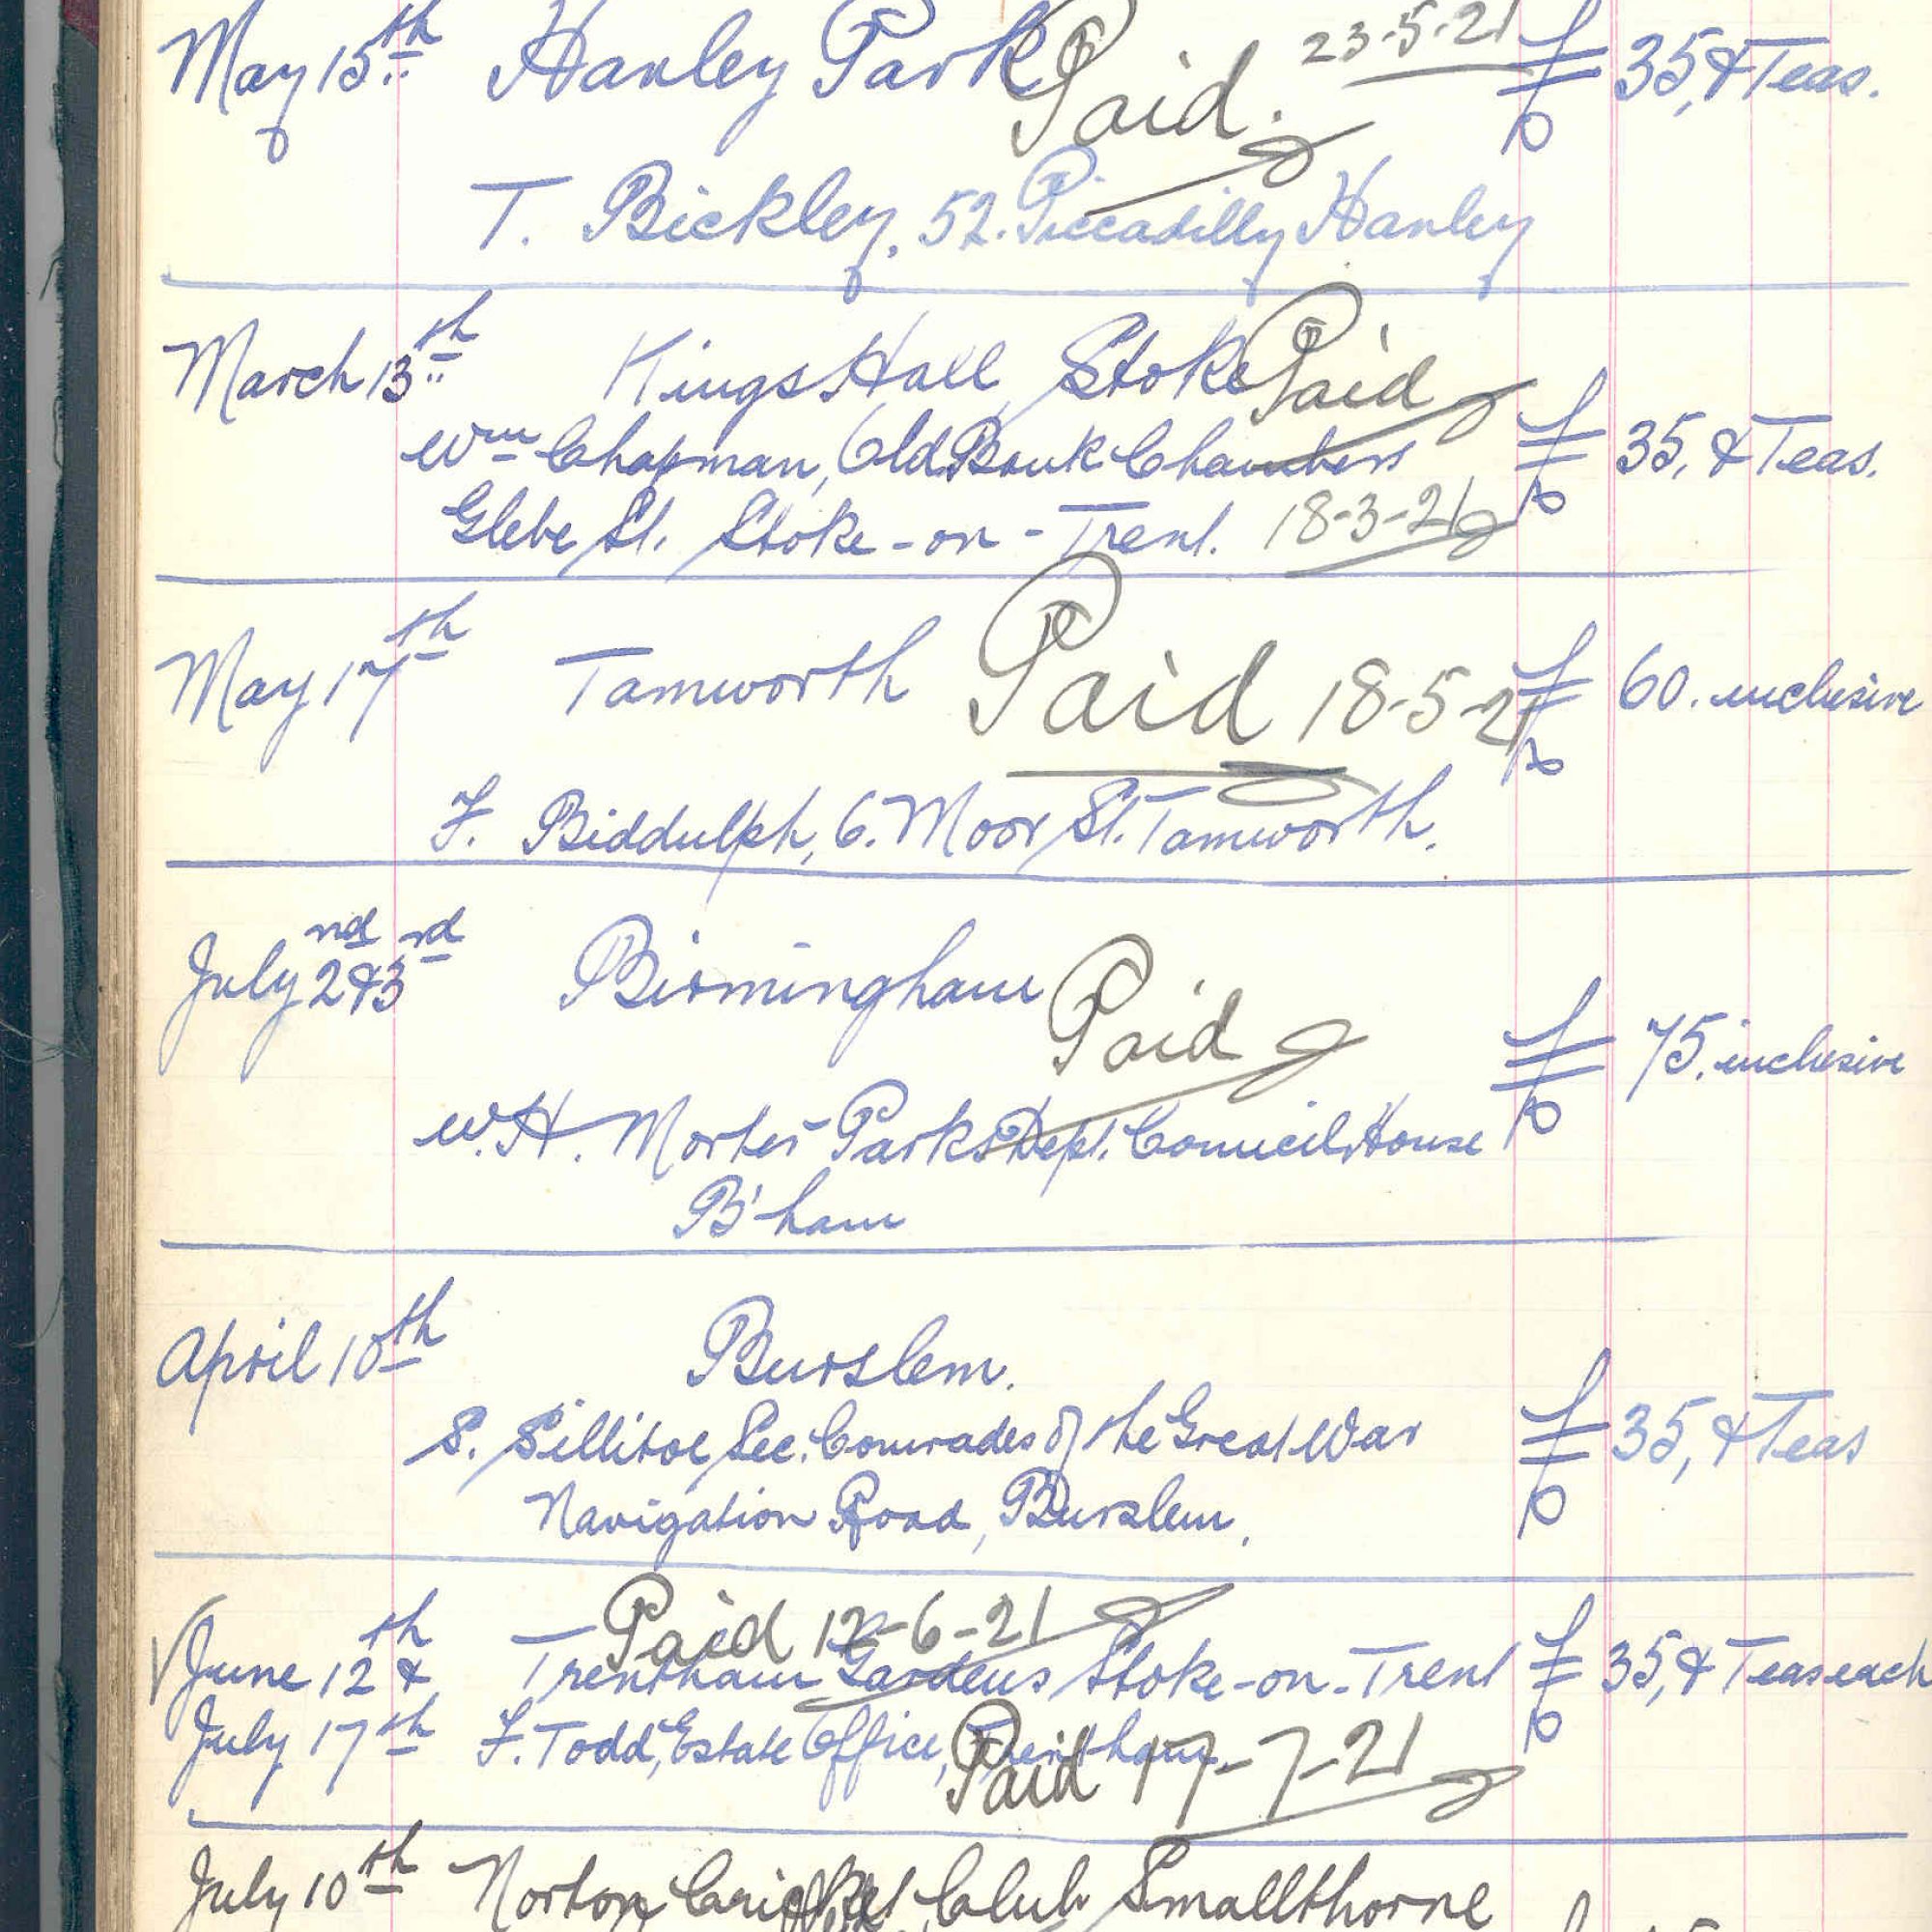 May 15th Hanley Park Paid. 23-5-21 £ 35, & Teas.
T. Bickley, 52. Piccadilly Hanley
March 13th Kings Hall, Stoke Paid
Wm Chapman, Old Bank Chambers £ 35, & Teas.
Glebe St. Stoke-on-Trent. 18-3-21
May 17th Tamworth Paid 18-5-21 £ 60. inclusive
F. Biddulph, 6. Moor St. Tamworth.
July 2nd & 3rd Birmingham Paid
£ 75. inclusive
W. H. Morter Parks Dept. Council House
B'ham
April 10th Burslem.
S. Sillitoe Sec. Comrades of the Great War £ 35, & Teas
Navigation Road, Burslem.
Paid 12-6-21
June 12th & Trentham Gardens Stoke-on-Trent £ 35, & Teas each
July 17th F. Todd, Estate Office, Trentham.
Paid 17-7-21
July 10th Norton Cricket Club Smallthorne